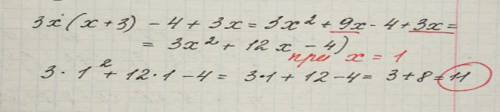 3x(x+3) - 4 + 3x = 3x² + 9x - 4 + 3x =
= 3x² + 12x - 4)
при x = 1
3 · 1² + 12 · 1 - 4 = 3·1 + 12 - 4 = 3 + 8 = 11